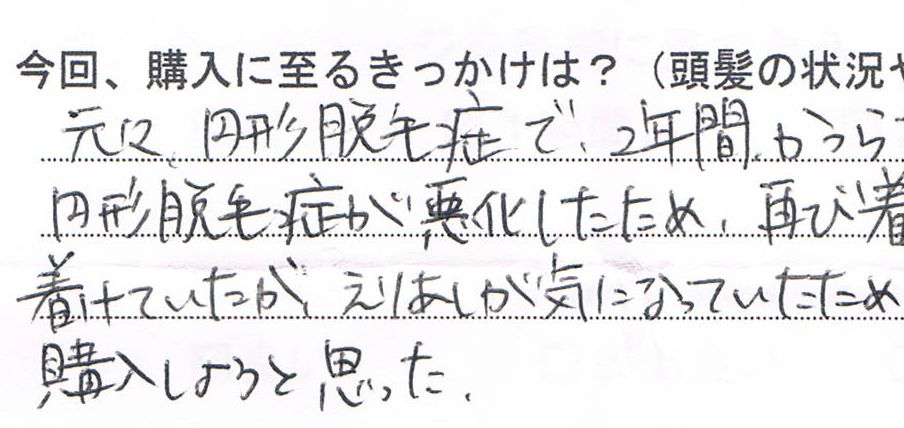 今回、購入に至るきっかけは？（頭髪の状況
元々、円形脱毛症で、2年間、かつら
円形脱毛症が悪化したため、再び着
着けていたが、えりあしが気になっていたため
購入しようと思った。